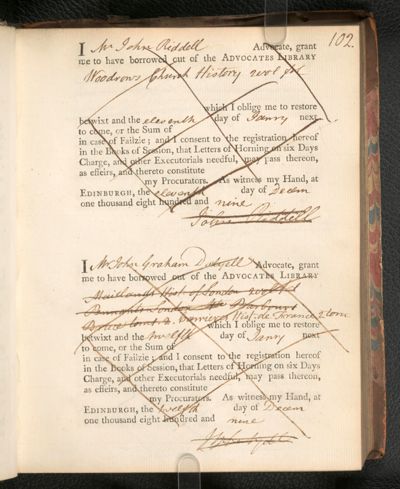 102.
I Mr John Riddell Advocate, grant
me to have borrowed out of the ADVOCATES LIBRARY
Woodrows Church History 2 vol fol
which I oblige me to restore
betwixt and the eleventh day of Janry next
to come, or the Sum of
in case of Failzie; and I consent to the registration hereof
in the Books of Session, that Letters of Horning on six Days
Charge, and other Executorials needful, may pass thereon,
as effeirs, and thereto constitute
my Procurators. As witness my Hand, at
EDINBURGH, the eleventh day of Decem
one thousand eight hundred and nine
John Riddell
I Mr John Graham Advocate, grant
me to have borrowed out of the ADVOCATES LIBRARY
Hist of London
Hist. de France 2 tom
which I oblige me to restore
betwixt and the twelfth day of Janry next
to come, or the Sum of
in case of Failzie; and I consent to the registration hereof
in the Books of Session, that Letters of Horning on six Days
Charge, and other Executorials needful, may pass thereon,
as effeirs, and thereto constitute
my Procurators. As witness my Hand, at
EDINBURGH, the twelfth day of Decem
one thousand eight hundred and nine